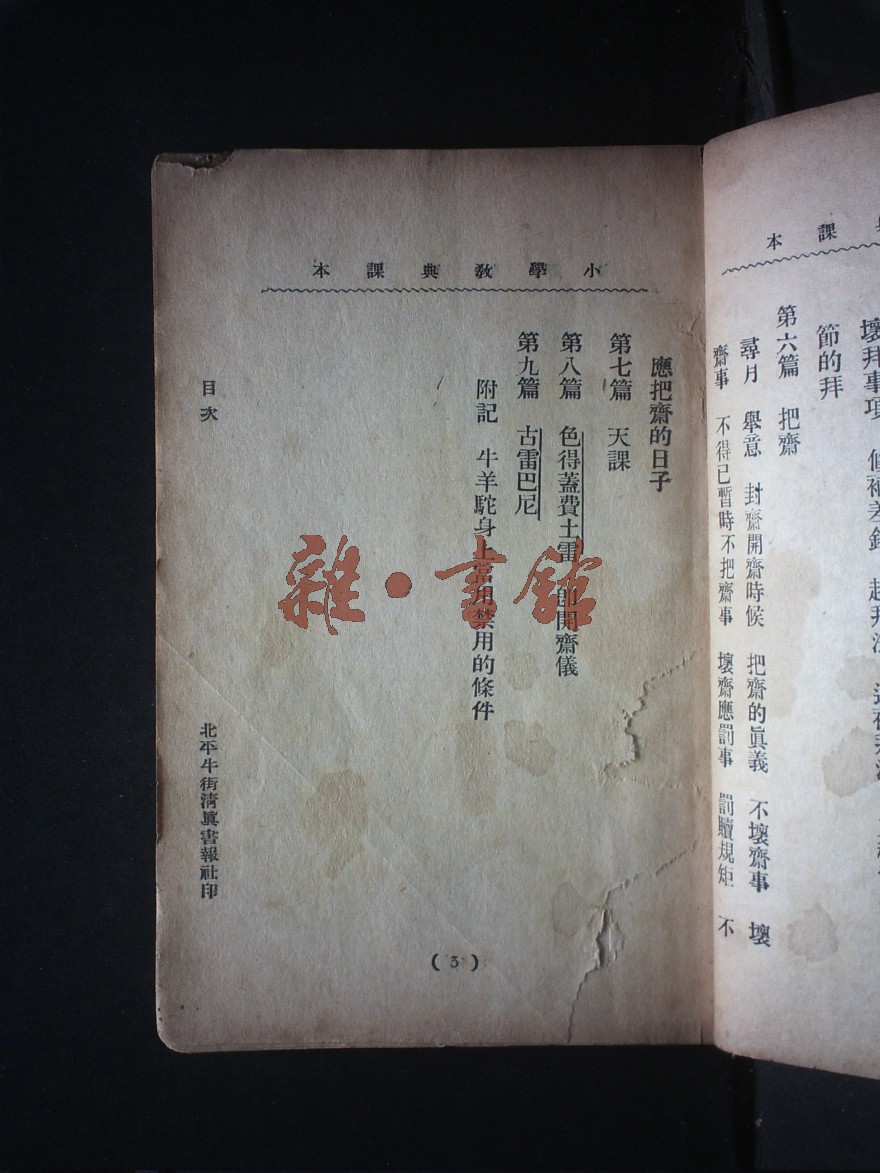 本課
壞拜事項
節的拜
第六篇 把齋
尋月 舉意 封齋開齋時候 把齋的眞義 不壞齋事 壞
齋事 不得已暫時不把齋事 壞齋應罰事 罰贖規矩 不
小學教典課本
應把齋的日子
第七篇 天課
第八篇 色得蓋費土雷 卽開齋儀
第九篇 古雷巴尼
附記 牛羊駝身上當用禁用的條件
目次
北平牛街淸眞書報社印
(3)
雜·書館